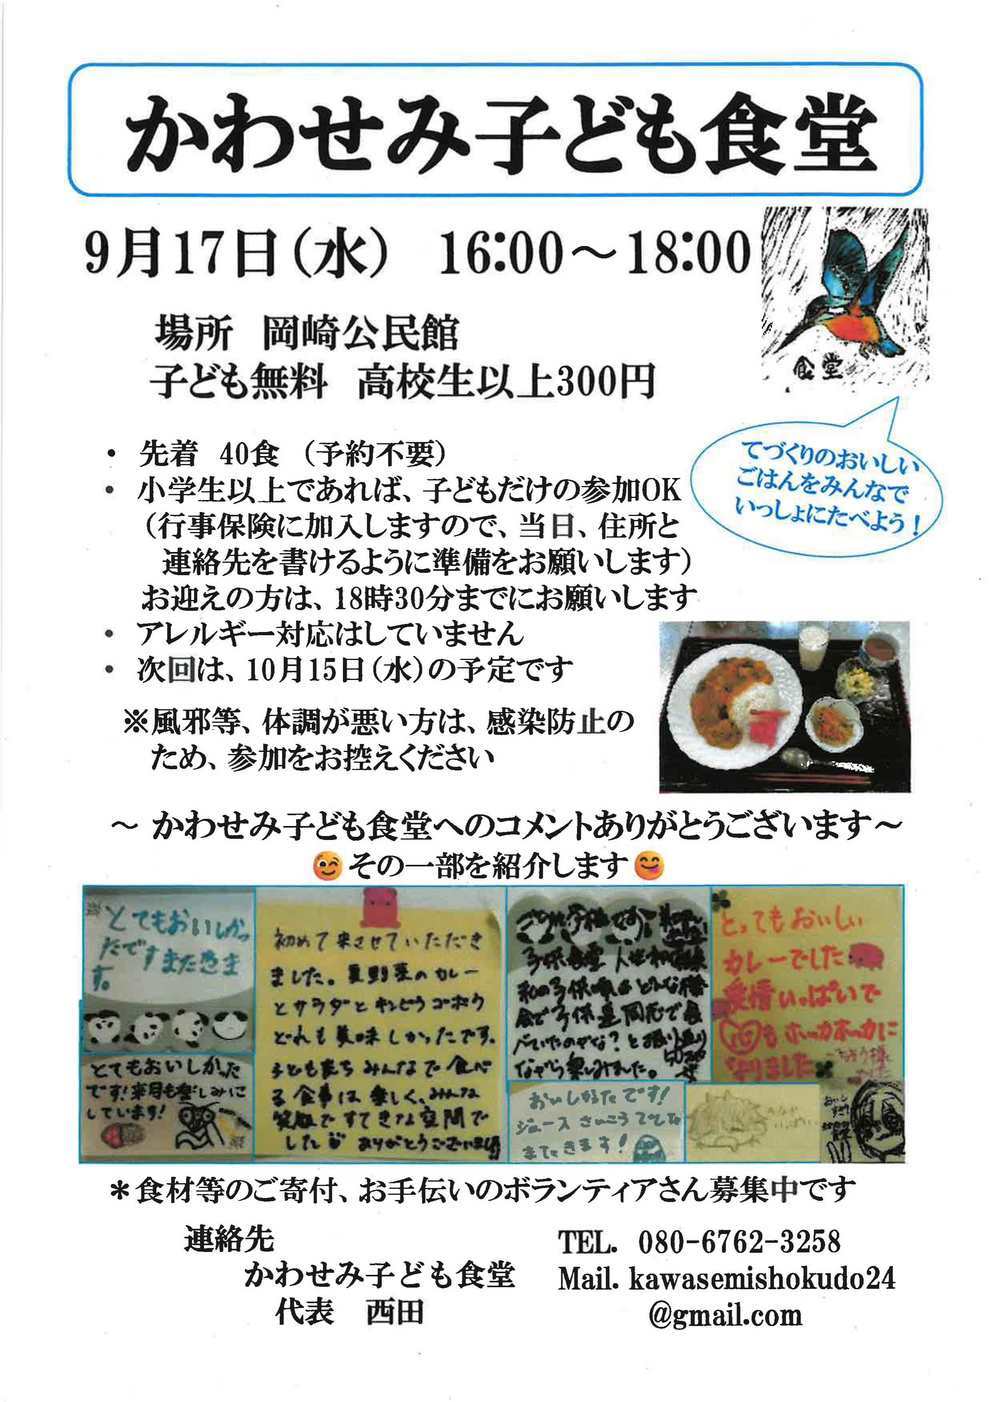 かわせみ子ども食堂
9月17日(水) 16:00～18:00
場所 岡崎公民館
子ども無料 高校生以上300円
食堂
てづくりのおいしい
ごはんをみんなで
いっしょにたべよう！
・ 先着 40食 (予約不要)
・ 小学生以上であれば、子どもだけの参加OK
(行事保険に加入しますので、当日、住所と
連絡先を書けるように準備をお願いします)
お迎えの方は、18時30分までにお願いします
・ アレルギー対応はしていません
・ 次回は、10月15日(水)の予定です
※風邪等、体調が悪い方は、感染防止の
ため、参加をお控えください
～ かわせみ子ども食堂へのコメントありがとうございます～
その一部を紹介します
とてもおいしかっ
たですまたきま
す。
とてもおいしかた
です!来月も楽しみに
しています!
初めて来させていただき
ました。夏野菜のカレー
とサラダとキンピラゴボウ
どれも美味しかったです。
子どもたちみんなで食べ
る食事は楽しく、みんな
笑顔ですてきな空間で
した ありがとうございました
とってもおいしい
カレーでした
愛情いっぱいで
心もホッカホッカに
なりました
おいしかたです!
ジュースさいこうでした
またきます!
＊食材等のご寄付、お手伝いのボランティアさん募集中です
連絡先
かわせみ子ども食堂
代表 西田
TEL. 080-6762-3258
Mail. kawasemishokudo24
@gmail.com